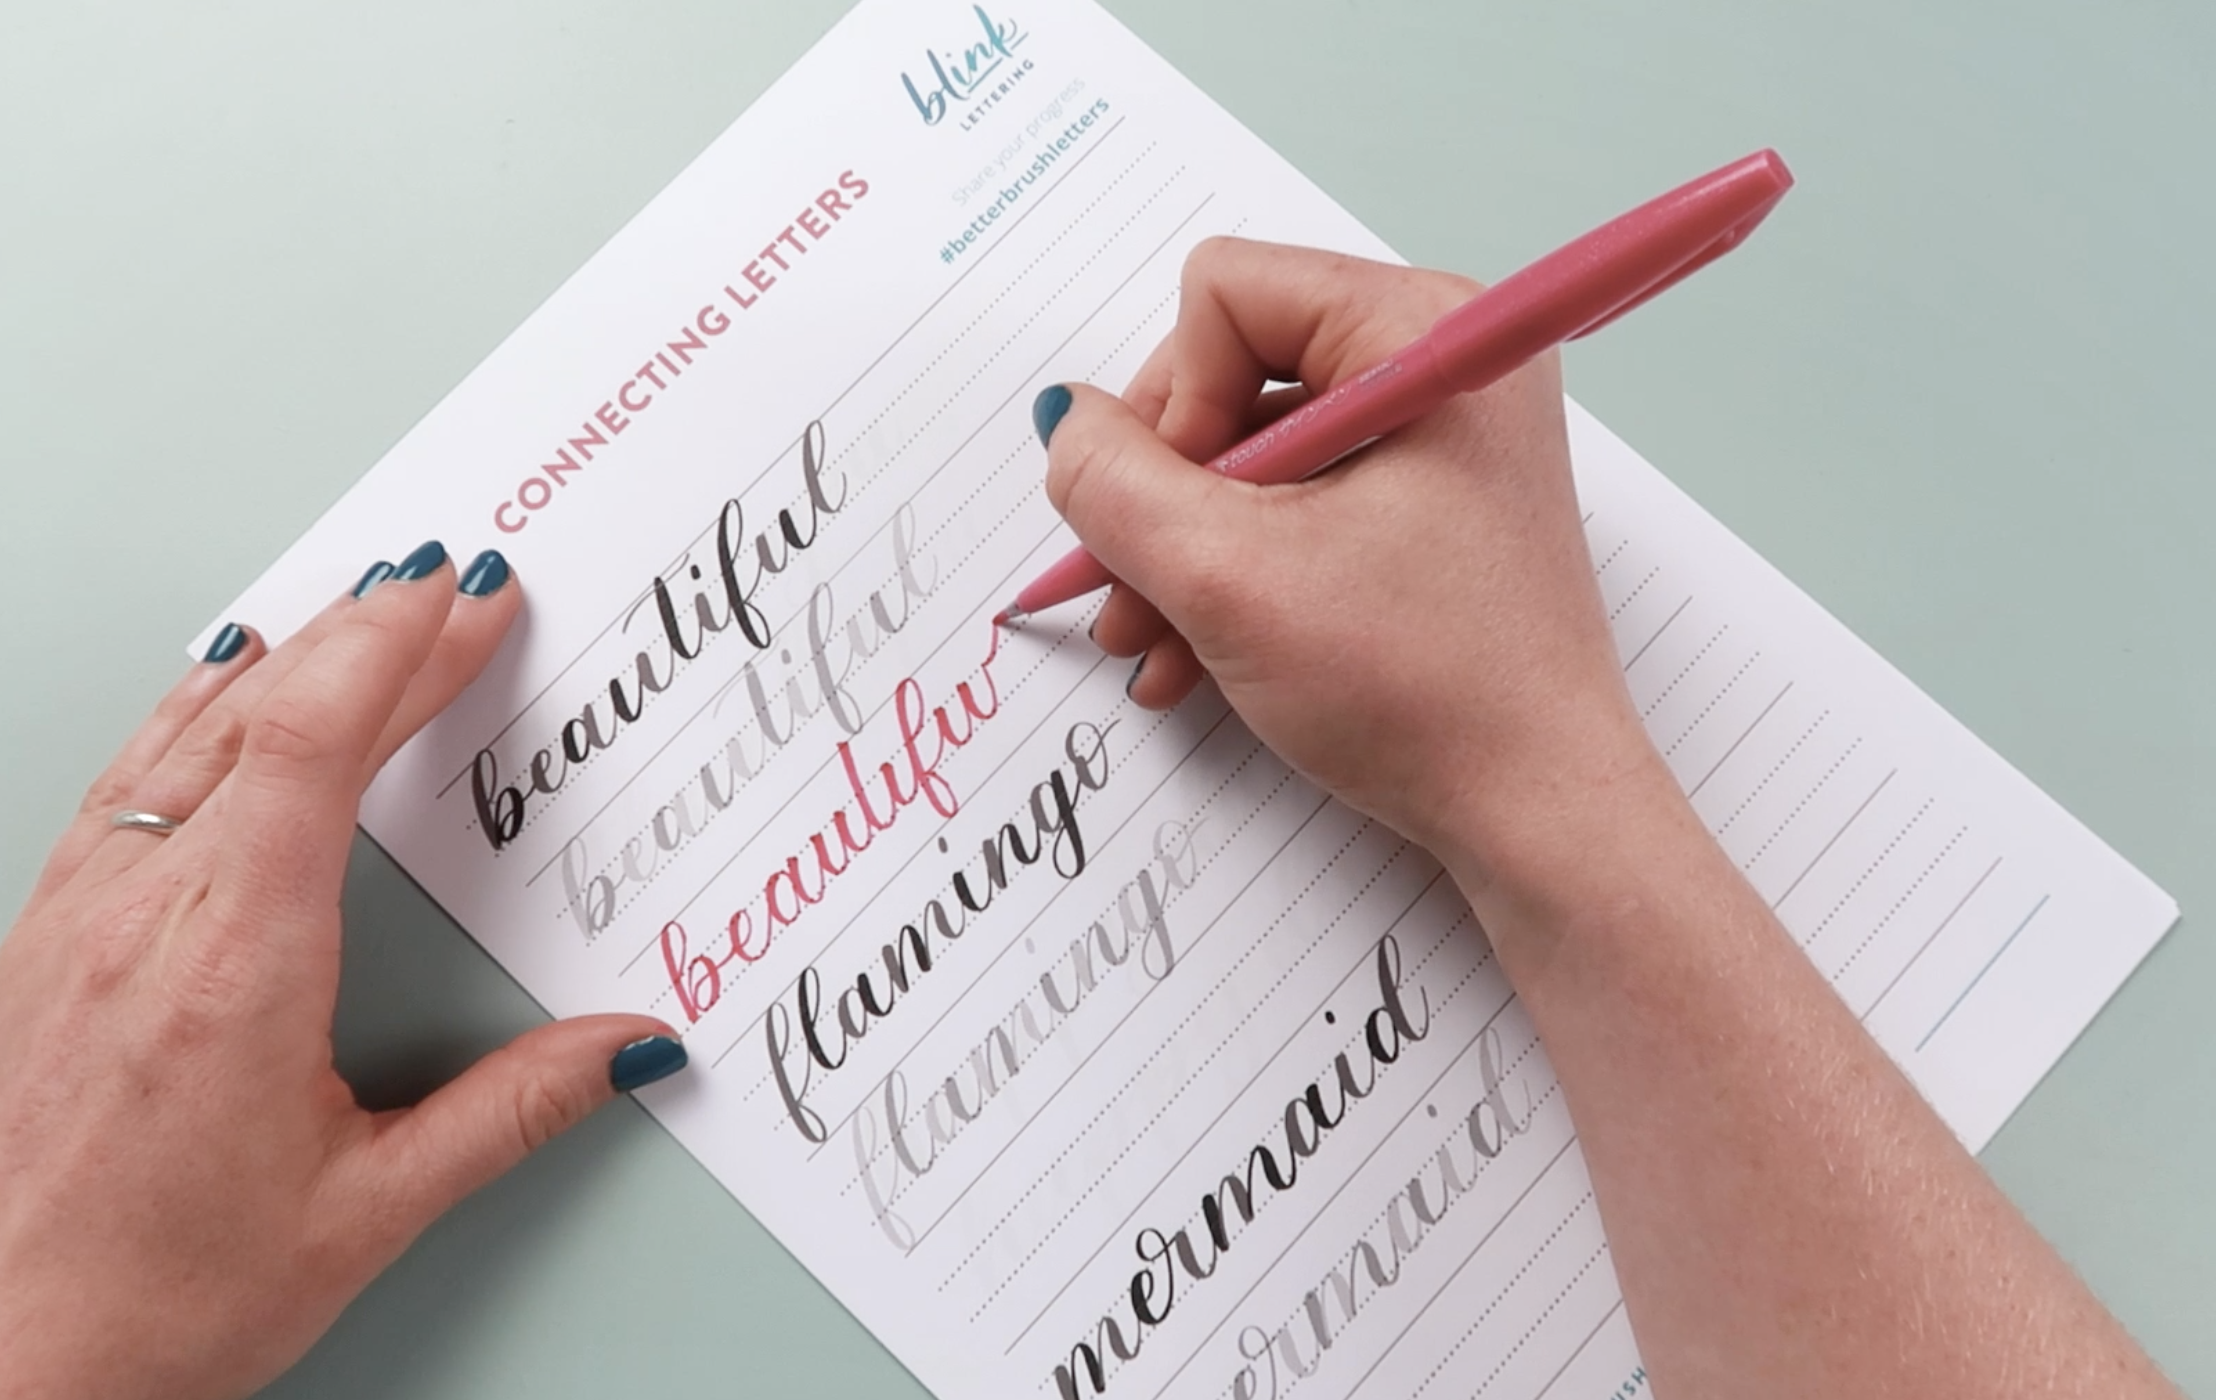 blink
LETTERING
Share your progress
#betterbrushletters
CONNECTING LETTERS
beautiful
beautiful
beautifu
flamingo
flamingo
mermaid
mermaid